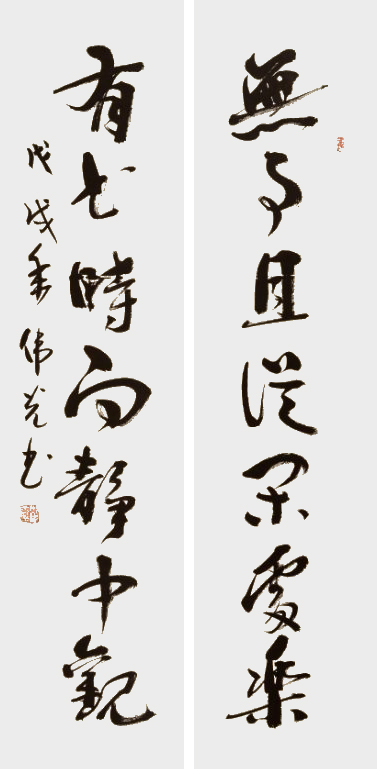 無事且從閑處樂
有書時向靜中觀
戊戌年伟光书